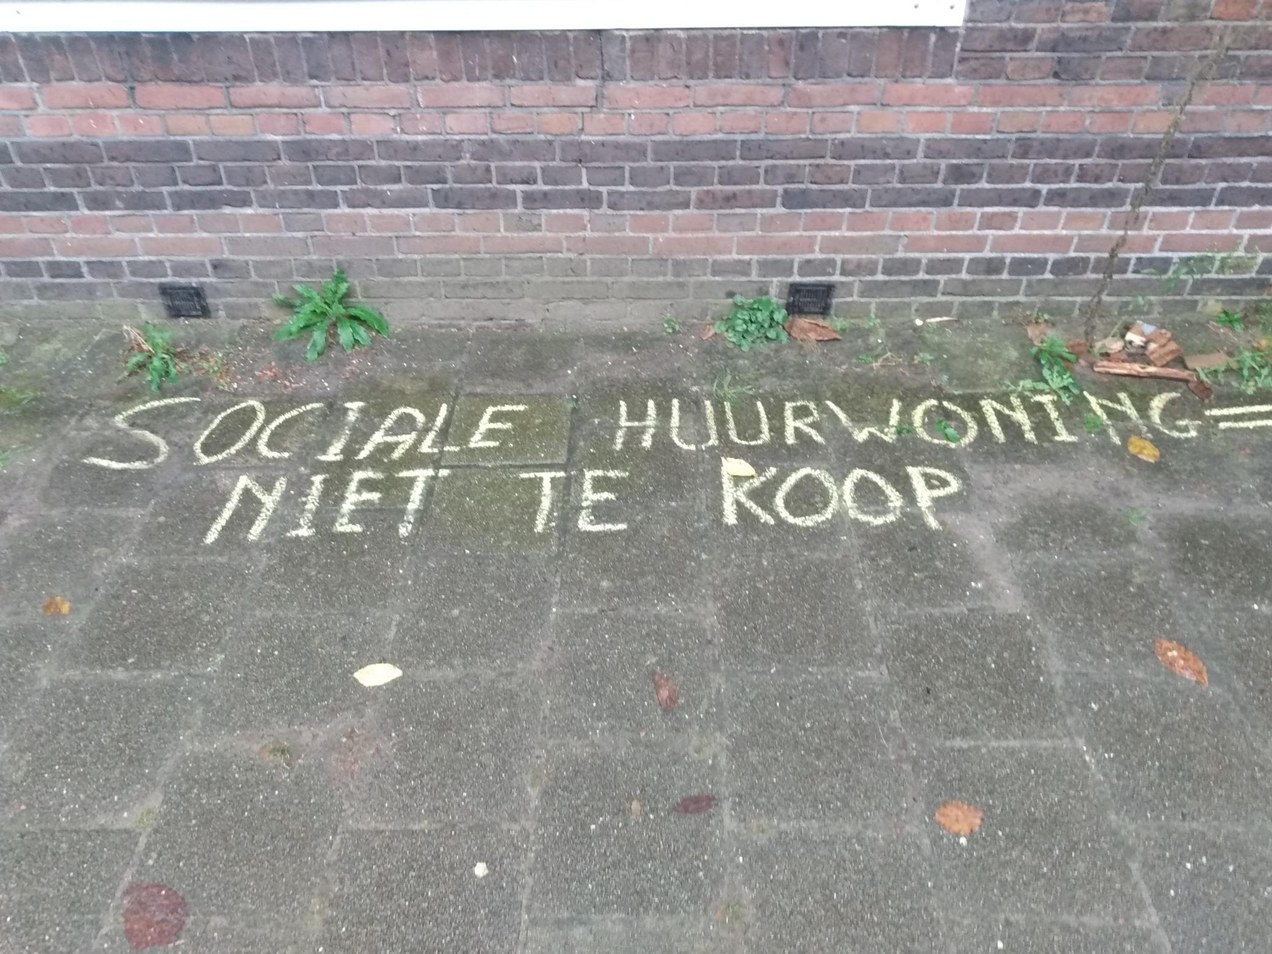 SOCIALE HUURWONING=
NIET TE KOOP